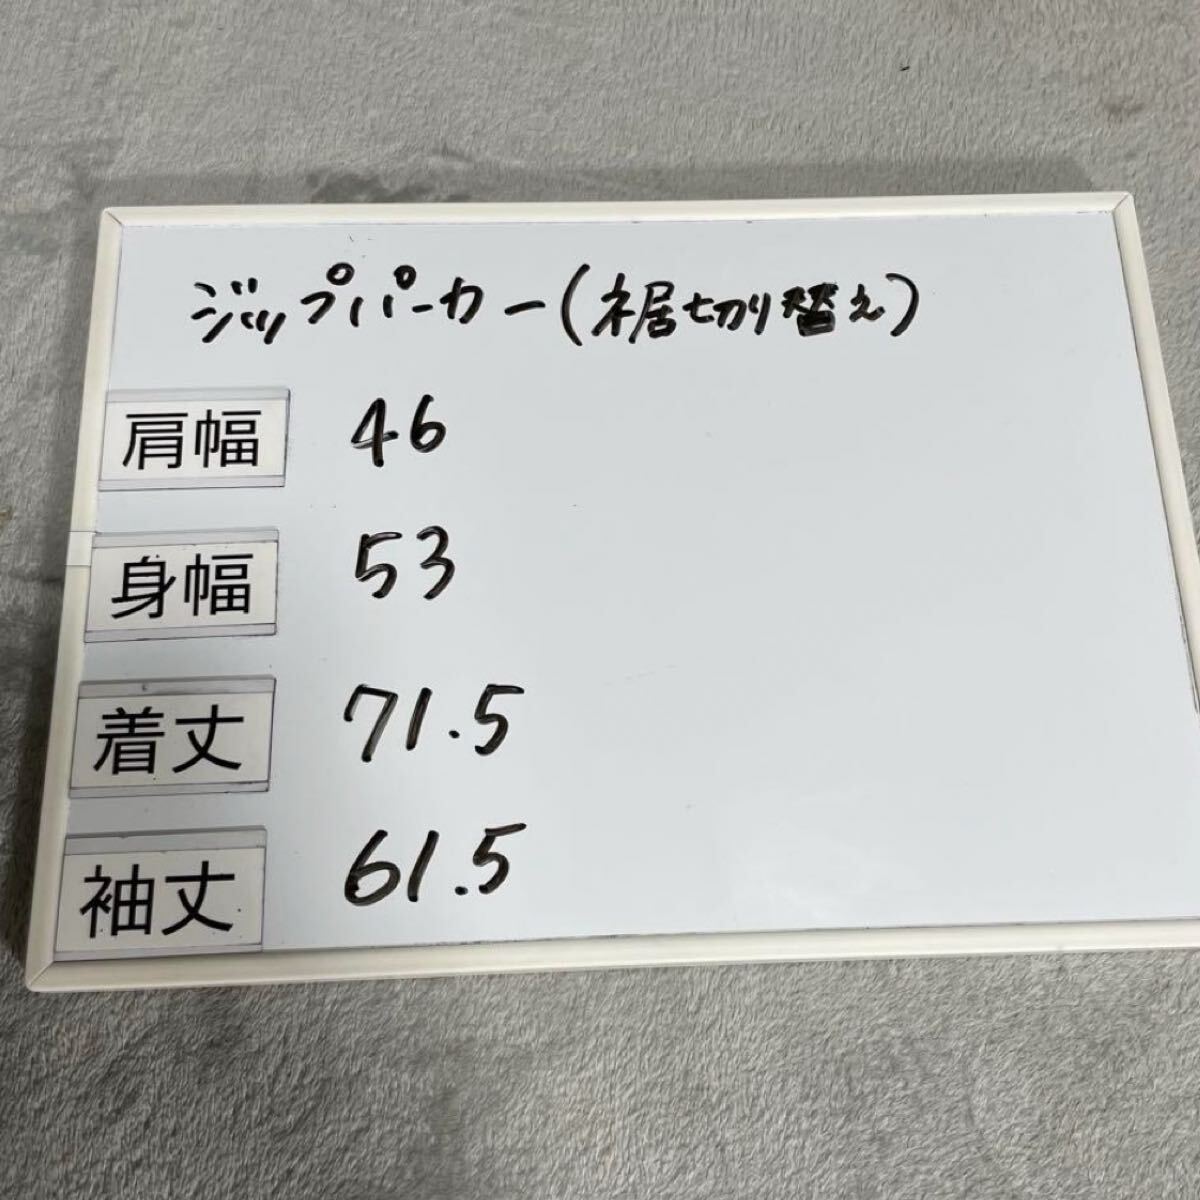 ジップパーカー(裾切り替え)
肩幅 46
身幅 53
着丈 71.5
袖丈 61.5